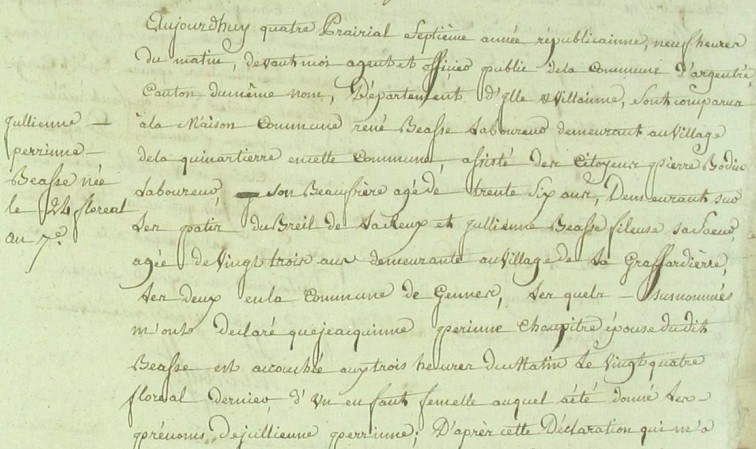 Aujourdhuy quatre Prairial Septième année républicainne, neuf heures
du matin, devant moi agent et officier public dela Commune D'argentré,
Canton dumême nom, Département d'Ille & Villainne, sont comparus
àla Maison Commune réné Beasse Laboureur demeurant au Village
dela quinartierre encette Commune, assisté des Citoyens pierre Bodin
Laboureur, son Beaufrère agé de trente six ans, Demeurant sur
les patis du Breil de et jullienne Beasse fileuse sa Soeur,
agée de vingt trois ans demeurante au Village de La Graffardière,
les deux en la Commune de Gennes, les quels surnommés
m'ont declaré que jeacquinne perinne Chaupitre épouse dudit
Beasse est accouchée aux trois heures du Matin le vingt quatre
floréal dernier, d'un enfant femelle auquel a été donné les
prénoms dejullienne perrinne; D'après cette Déclaration qui m'a
jullienne
perrinne
Beasse née
le 24 floreal
an 7e.